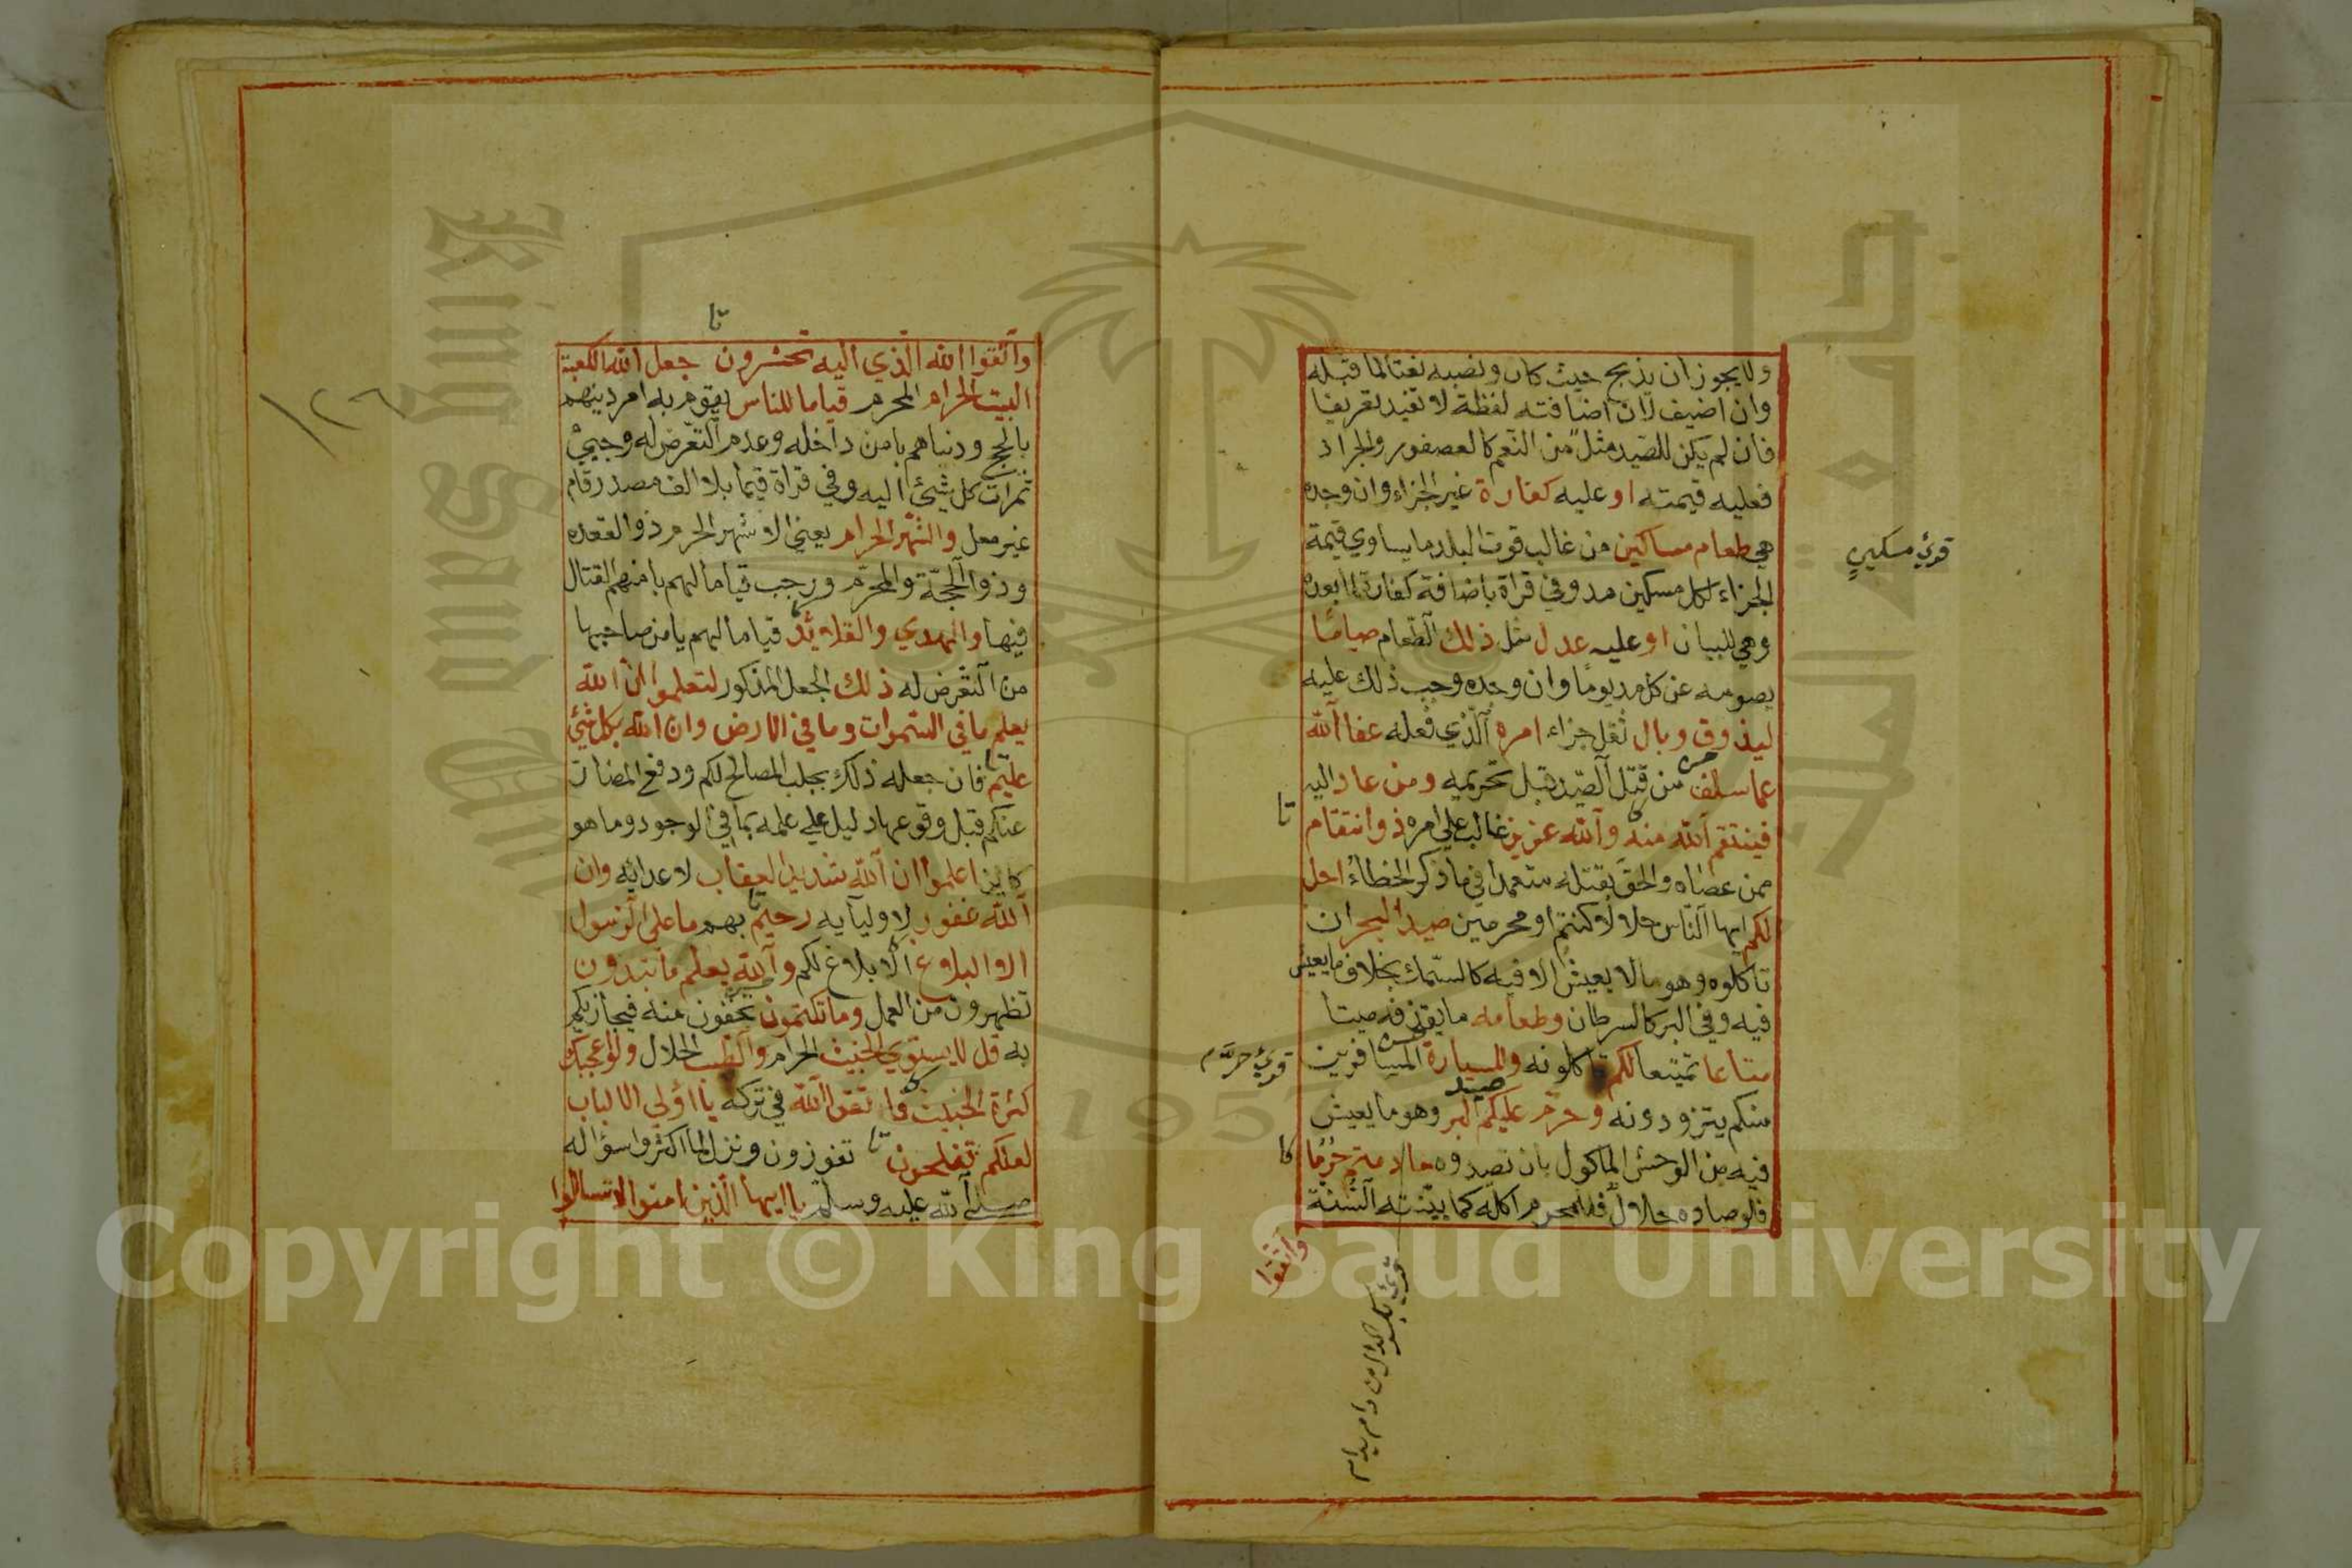 ولا يجوز ان يذبح حيث كان ونصبه نعتا لما قبله
وان اضيف لان اضافته لفظة لا تفيد تعريفا
فان لم يكن للصّيد مثل من النّعم كالعصفور والجراد
فعليه قيمته او عليه كفارة غير الجزاء وان وجده
هي طعام مساكين من غالب قوت البلد ما يساوي قيمة
الجزاء لكل مسكين مد وفي قراة باضافة كفارة لما بعده
وهي للبيان او عليه عدل مثل ذلك الطّعام صياما
يصومه عن كل مد يوما وان وجده وجب ذلك عليه
ليذوق وبال ثقل جزاء امره الّذي فعله عفا الله
عما سلف من قتل الصّيد قبل تحريمه ومن عاد اليه
فينتقم الله منه والله عزيز غالب على امره ذو انتقام
ممن عصاه والحق بقتله متعمدا في ما ذكر الخطاء احل
لكم ايها النّاس حلالا كنتم او محرمين صيد البحر ان
تاكلوه وهو مالا يعيش الا فيه كالسّمك بخلاف ما يعيش
فيه وفي البر كالسرطان وطعامه ما يقذفه ميتا
متاعا تمتيعا لكم تاكلونه وللسيارة المسافرين
منكم يتزودونه وحرّم عليكم صيد البر وهو ما يعيش
فيه من الوحش الماكول بان تصيدوه ما دمتم حرما
فلو صاده حلال فللمحرم اكله كما بيّنته السّنة
واتقوا
قرئ مسكين
قرئ حرّم
قرئ بكسر الدال من دام يدام
تا
واتّقوا الله الّذي اليه تحشرون جعل الله الكعبة
البيت الحرام المحرم قياما للناس يقوم به امر دينهم
بالحج ودنياهم بامن داخله وعدم التعرّض له وجبي
ثمرات كل شيئ اليه وفي قراة قيما بلا الف مصدر قام
غير معل والشّهر الحرام يعني الاشهر الحرم ذو القعده
وذو الحجّة والمحرّم ورجب قياما لهم بامنهم القتال
فيها والهدي والقلائد قياما لهم يامن صاحبها
من التعرض له ذلك الجعل المذكور لتعلموا ان الله
يعلم ما في السّموات وما في الارض وان الله بكل شيئ
عليم فان جعله ذلك بجلب المصالح لكم ودفع المضار
عنكم قبل وقوعها دليل على علمه بما في الوجود وما هو
كاين اعلموا ان الله شديد العقاب لاعدائه وان
الله غفور لاوليآيه رحيم بهم ما على الرّسول
الا البلاغ الابلاغ لكم والله يعلم ما تبدون
تظهرون من العمل وما تكتمون تخفون منه فيجازيكم
به قل لا يستوي الخبيث الحرام والطّيب الحلال ولو اعجبك
كثرة الخبيث فاتقوا الله في تركه يا اولي الالباب
لعلكم تفلحون تفوزون ونزل لما اكثروا سؤاله
صلى الله عليه وسلم يا ايها الّذين امنوا لا تسالوا
١٢٦
King Saud University
1957
Copyright © King Saud University